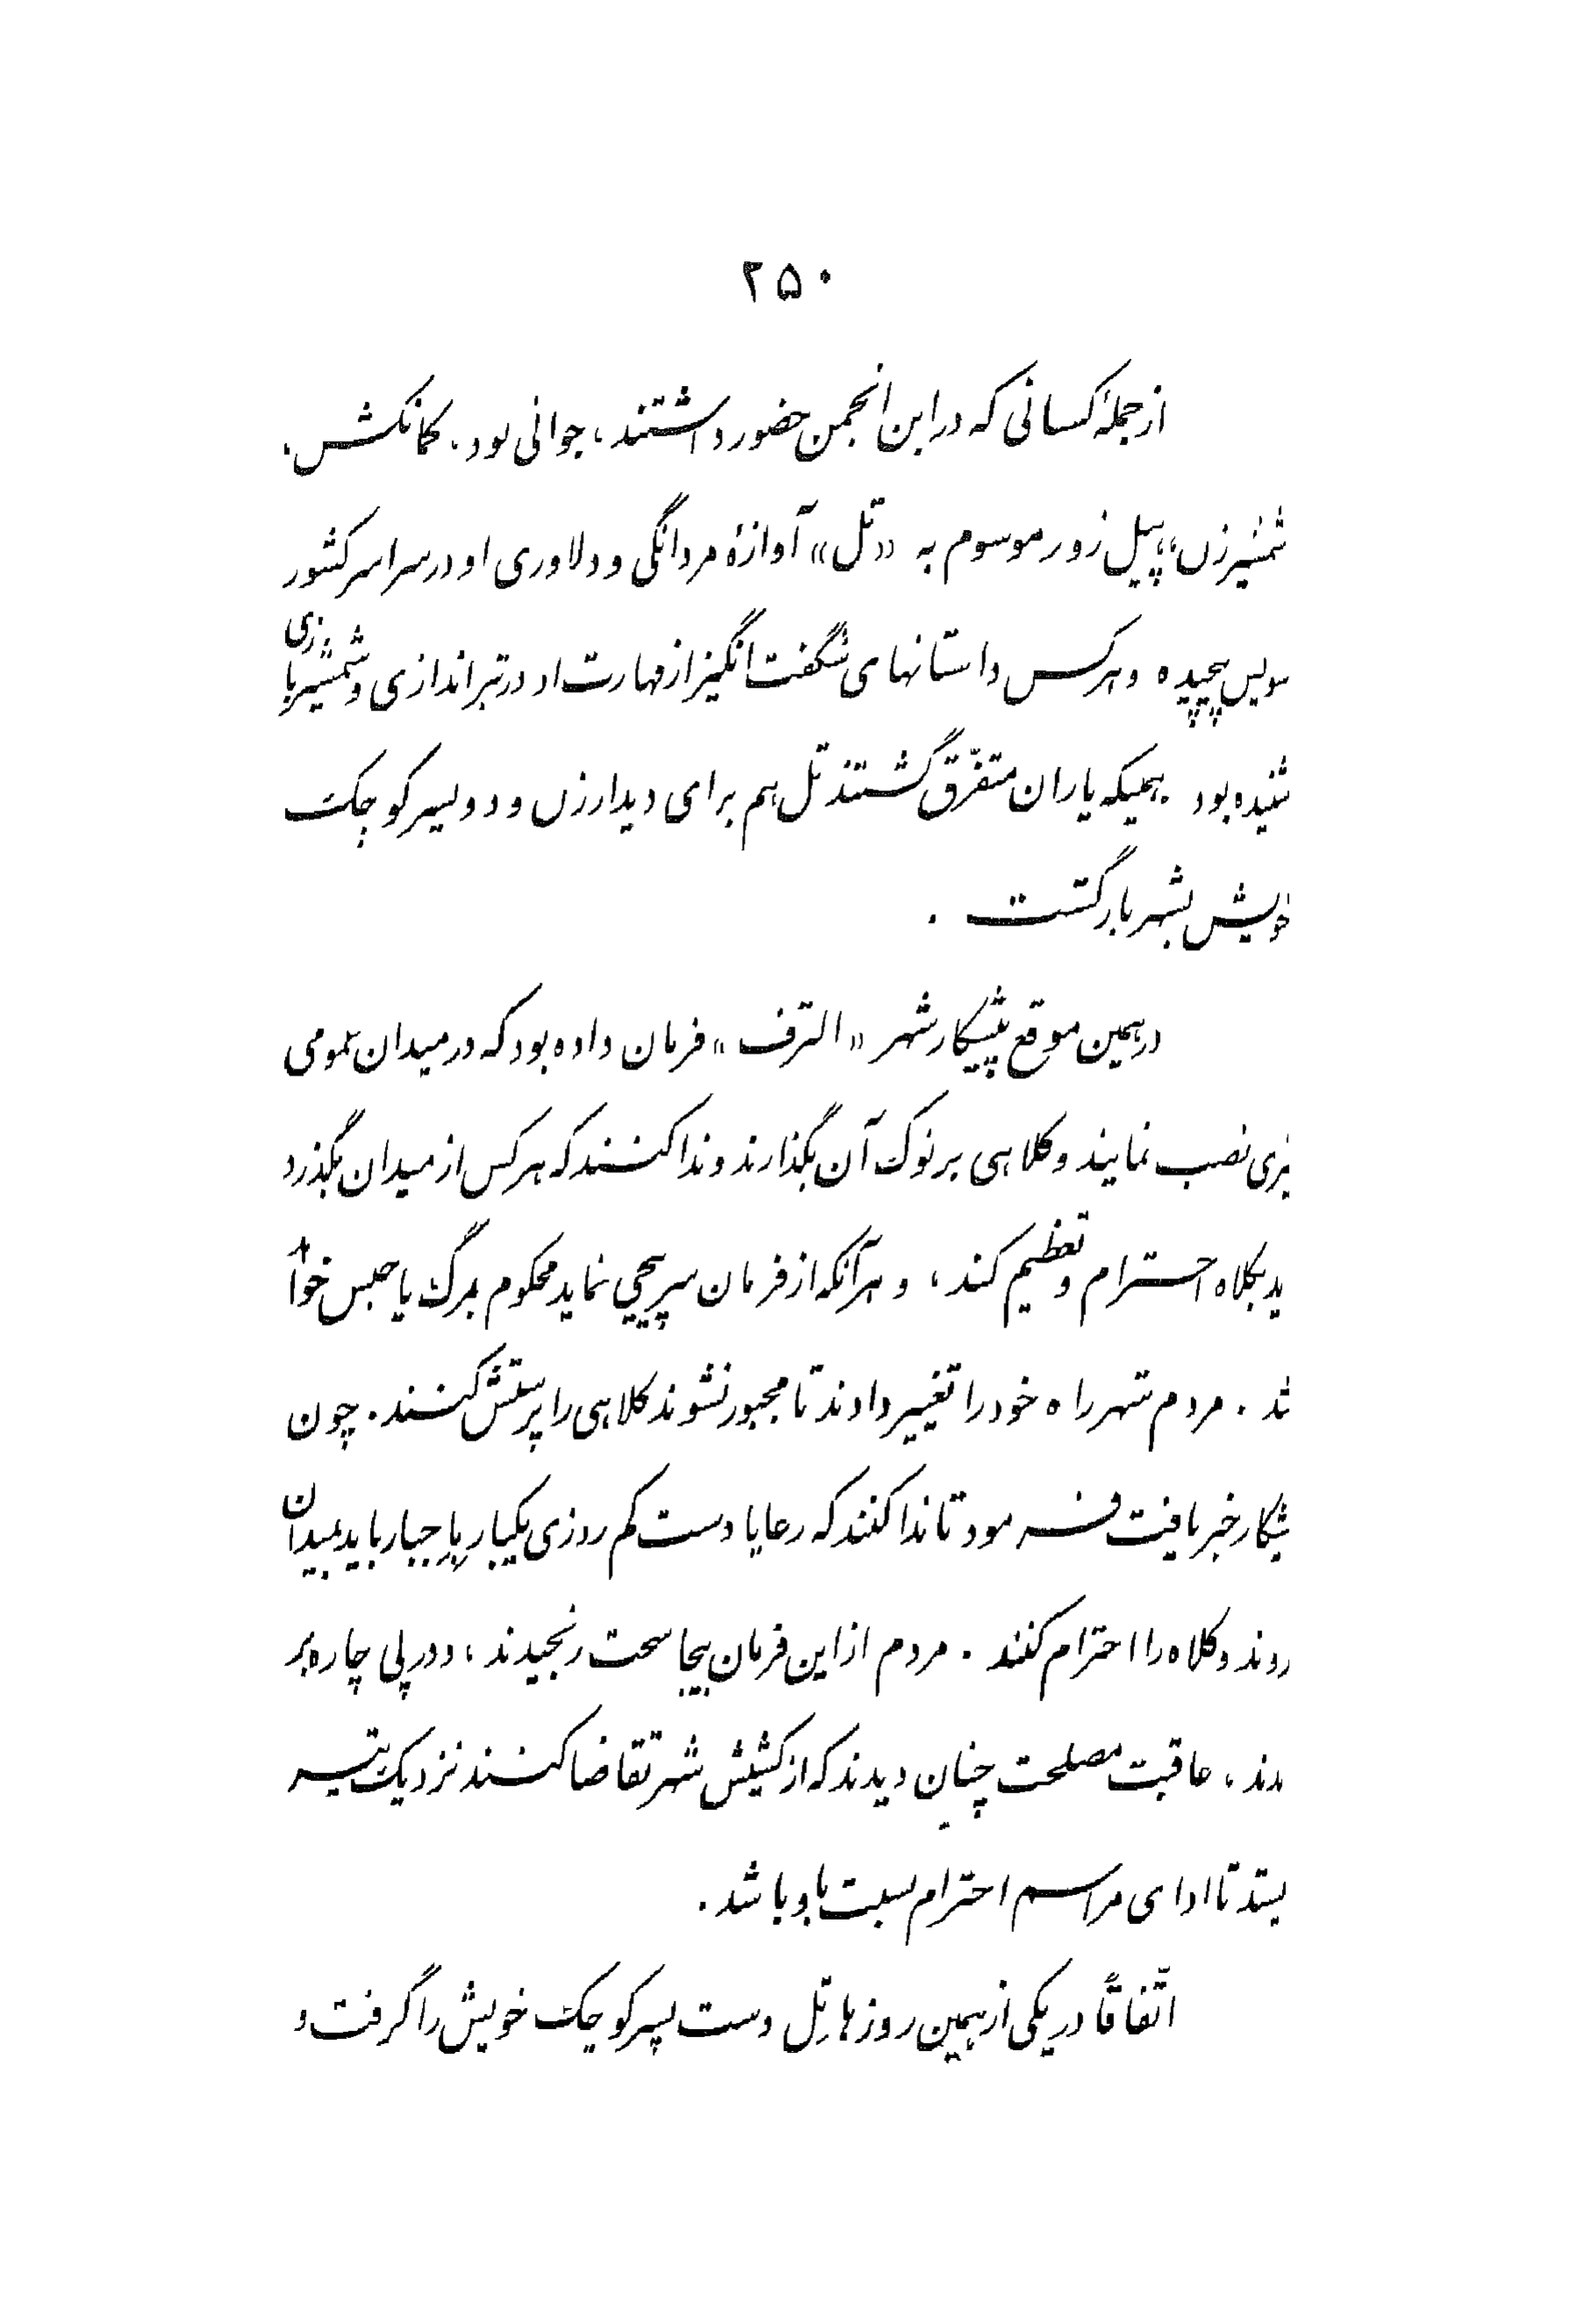 ۲۵۰
از جملهٔ کسانی که در این انجمن حضور داشتند ، جوانی بود . کمانکش ،
شمشیرزن ، پیل زور موسوم به «تل» آوازهٔ مردانگی و دلاوری او در سراسر کشور
سویس پیچیده و هر کس داستانهای شگفت انگیز از مهارت او در تیراندازی و شمشیربازی
شنیده بود همینکه یاران متفرّق گشتند تل هم برای دیدار زن و دو پسر کوچک
خویش بشهر بازگشت .
در همین موقع پیشکار شهر « الترف » فرمان داده بود که در میدان عمومی
تیری نصب نمایند و کلاهی بر نوک آن بگذارند و ندا کنند که هر کس از میدان بگذرد
ید بکلاه احترام و تعظیم کند ، و هر آنکه از فرمان سرپیچی نماید محکوم بمرگ یا حبس خواهد
شد . مردم شهر راه خود را تغییر دادند تا مجبور نشوند کلاهی را پرستش کنند . چون
یشکار خبر یافت فرمود تا ندا کنند که رعایا دست کم روزی یکبار باجبار باید بمیدان
روند و کلاه را احترام کنند . مردم از این فرمان بیجا سخت رنجیدند ، و در پی چاره بر
مدند ، عاقبت مصلحت چنان دیدند که از کشیش شهر تقاضا کنند نزدیک تیر
یستد تا ادای مراسم احترام نسبت باو باشد .
اتّفاقاً در یکی از همین روزها تِل دست پسر کوچک خویش را گرفت و